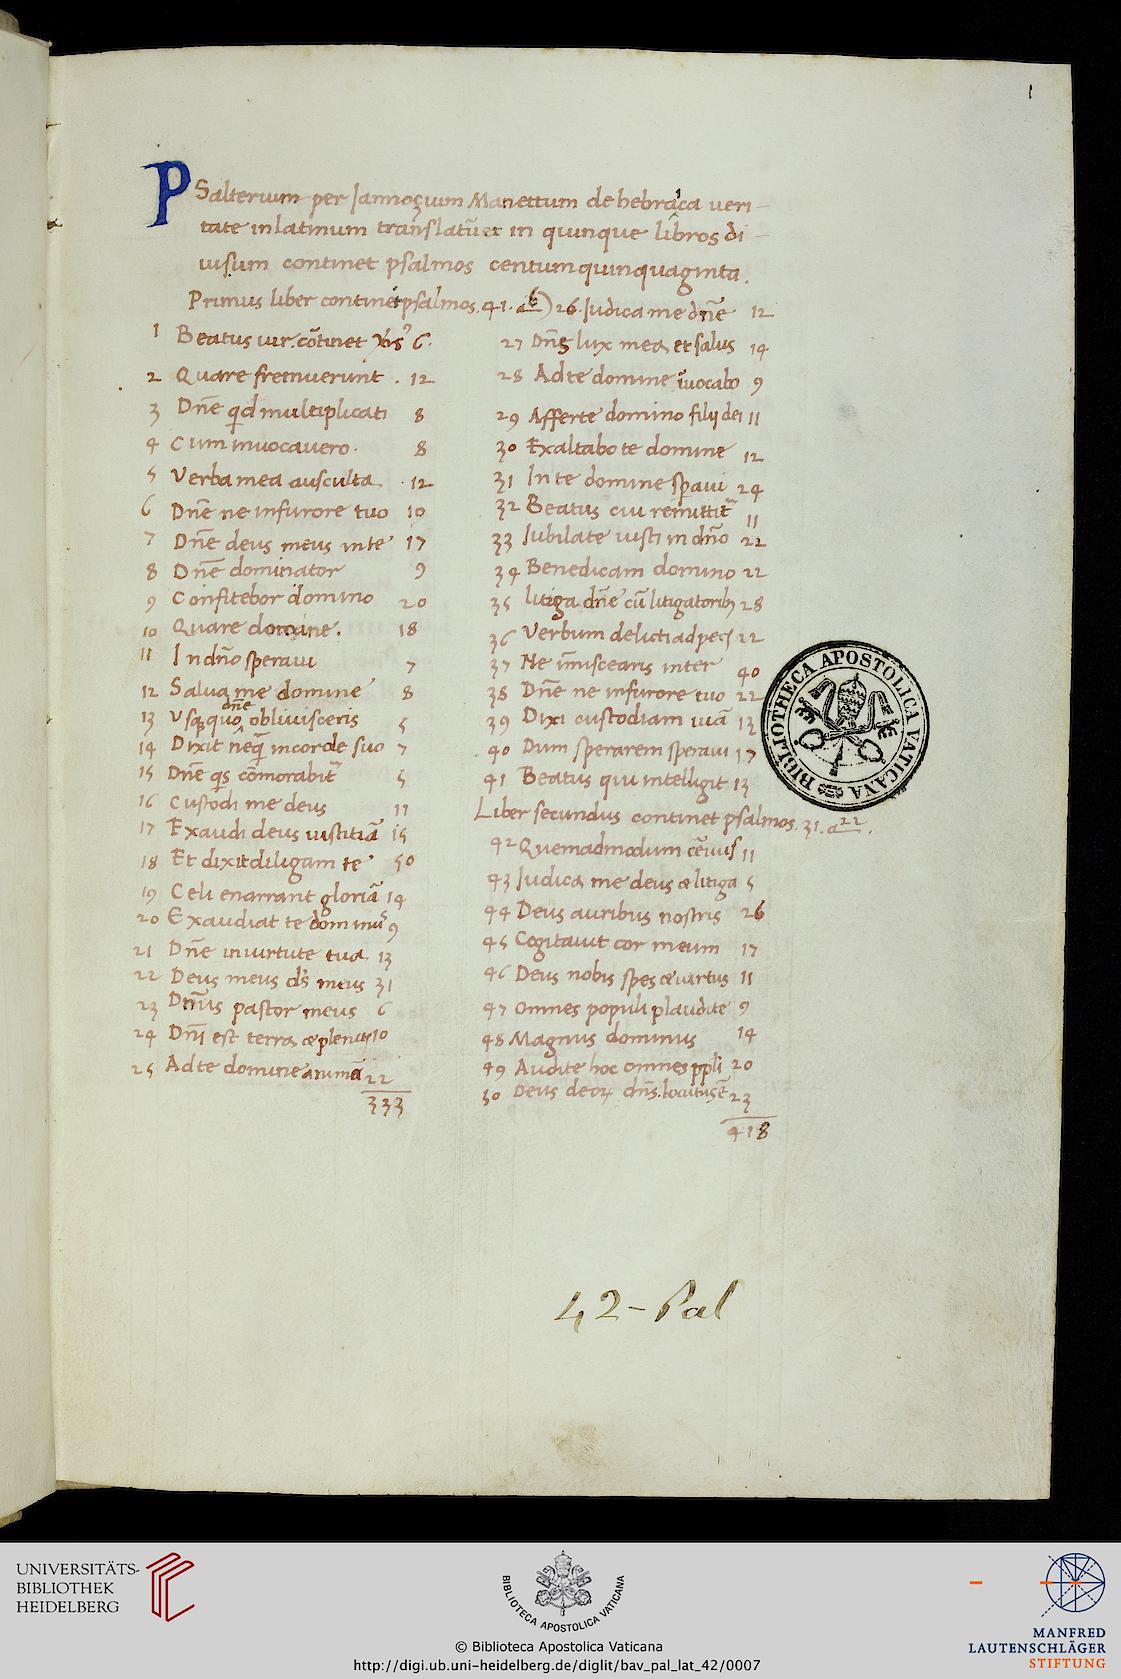 1
PSalterium per Jannoçium Manettum de hebraica veri-
tate in latinum translatũ et in quinque libros di-
uisum continet psalmos centumquinquaginta.
Primus liber continet psalmos. 41. a b)
1 Beatus uir. cõtinet 6.
2 Quare fremuerunt. 12
3 Dñe qd multiplicati 8
4 Cum inuocauero. 8
5 Verba mea ausculta. 12
6 Dñe ne infurore tuo 10
7 Dñe deus meus inte 17
8 Dñe dominator 9
9 Confitebor domino 20
10 Quare domine. 18
11 In dño speraui 7
12 Salua me domine 8
13 Vsqquo dñe obliuisceris 5
14 Dixit neq incorde suo 7
15 Dñe qs cõmorabit 5
16 Custodi me deus 11
17 Exaudi deus iustitiã 15
18 Et dixit diligam te 50
19 Celi enarrant gloriã 14
20 Exaudiat te dominus 9
21 Dñe inuirtute tua 13
22 Deus meus ds meus 31
23 Dñus pastor meus 6
24 Dñi est terra & plenit 10
25 Adte domine animã 22
333
26. Judica me dñe 12
27 Dñs lux mea et salus 14
28 Adte domine iuocabo 9
29 Afferte domino filij dei 11
30 Exaltabo te domine 12
31 Inte domine speraui 24
32 Beatus cui remittit 11
33 Iubilate iusti in dño 22
34 Benedicam domino 22
35 litiga dñe cũ litigatorib 28
36 Verbum delicti ad pec 22
37 Ne ĩmiscearis inter 40
38 Dñe ne infurore tuo 22
39 Dixi custodiam uiã 13
40 Dum sperarem speraui 17
41 Beatus qui intelligit 13
Liber secundus continet psalmos. 31. a 22.
42 Quemadmodum ceruus 11
43 Judica me deus & litiga 5
44 Deus auribus nostris 26
45 Cogitauit cor meum 17
46 Deus nobis spes & uirtus 11
47 Omnes populi plaudite 9
48 Magnus dominus 14
49 Audite hoc omnes ppli 20
50 Deus deor dñs. locutus ẽ 23
418
BIBLIOTHECA APOSTOLICA VATICANA
42-Pal
UNIVERSITÄTS-
BIBLIOTHEK
HEIDELBERG
BIBLIOTECA APOSTOLICA VATICANA
© Biblioteca Apostolica Vaticana
http://digi.ub.uni-heidelberg.de/diglit/bav_pal_lat_42/0007
MANFRED
LAUTENSCHLÄGER
STIFTUNG